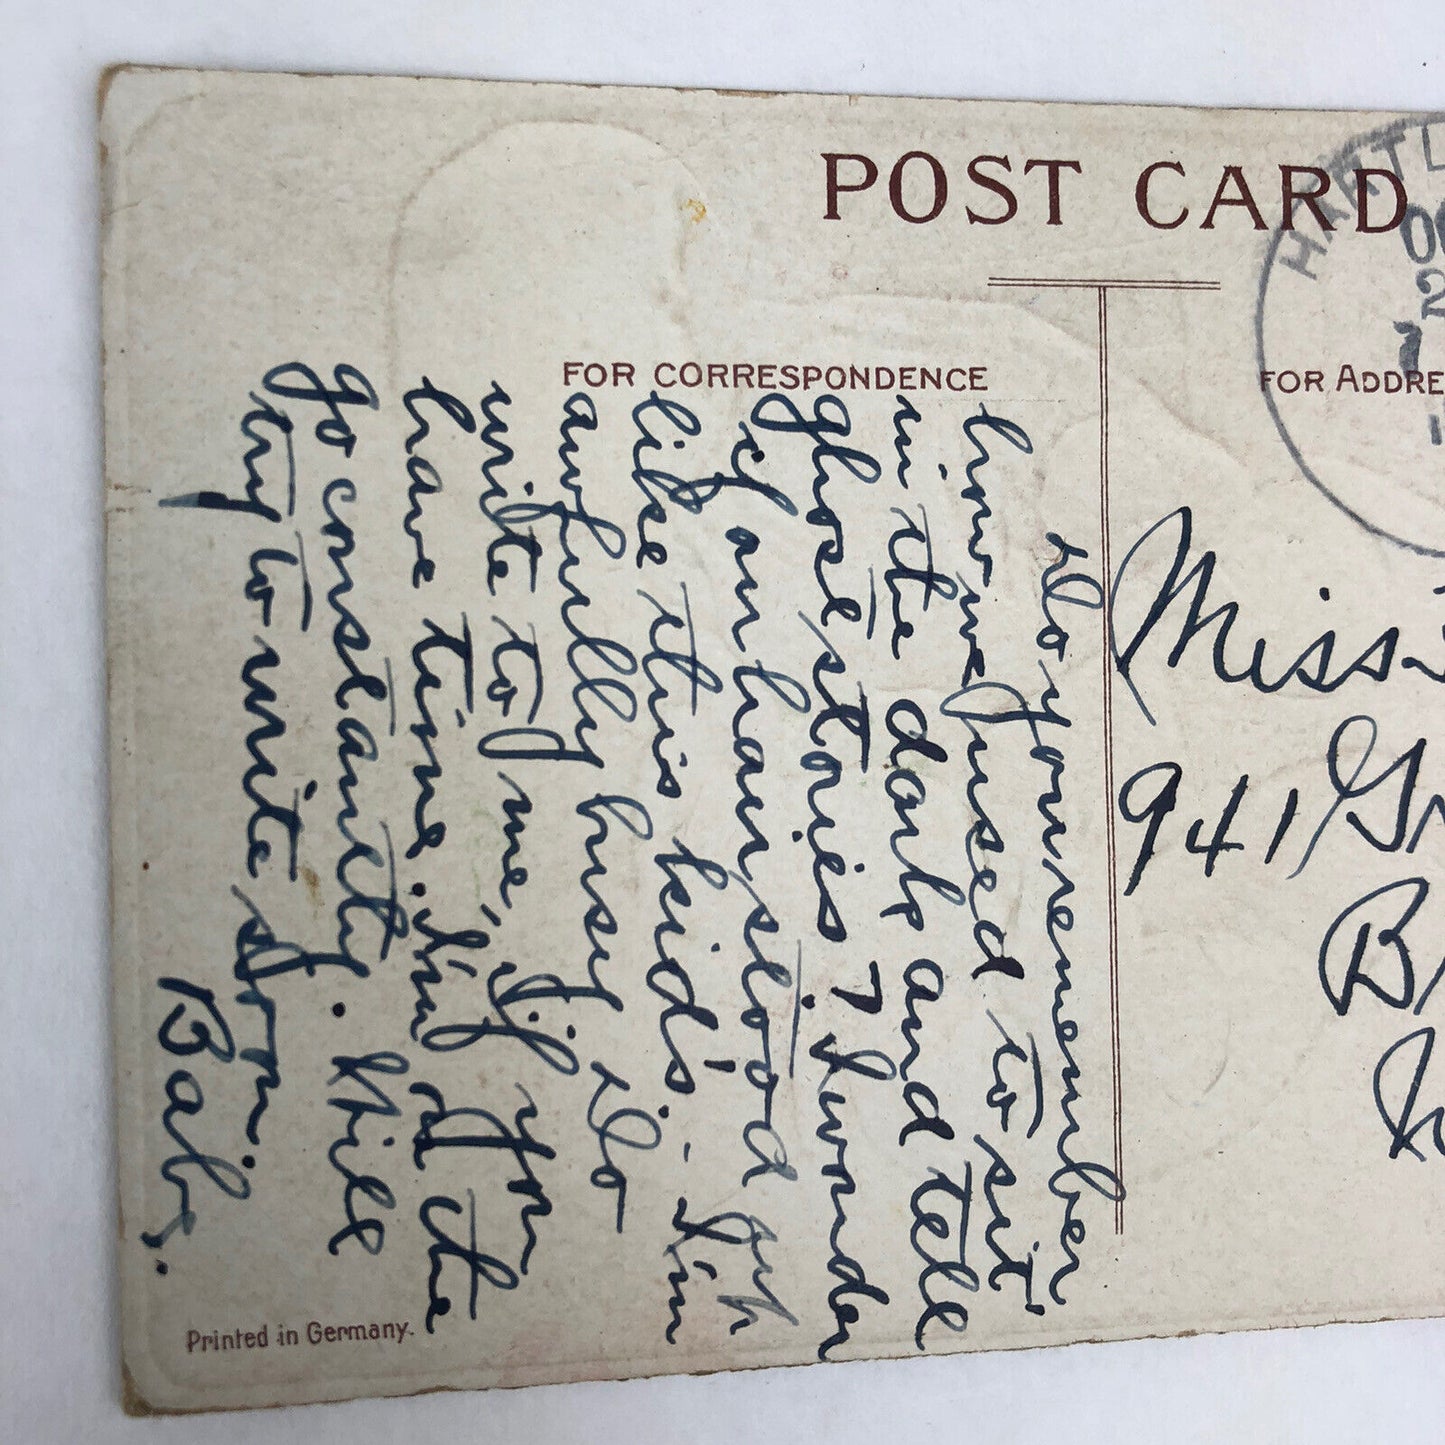 POST CARD
FOR CORRESPONDENCE
FOR ADDRE
HARTL
2
7
Do you remember
how we used to sit
in the dark and tell
ghost stories? I wonder
if our hair stood up
like this kid's. - I'm
awfully busy. Do
write to me, if you
have time. I'm on the
go constantly. Will
try to write soon.
Bab's.
Printed in Germany.
Miss
941 Gr
B